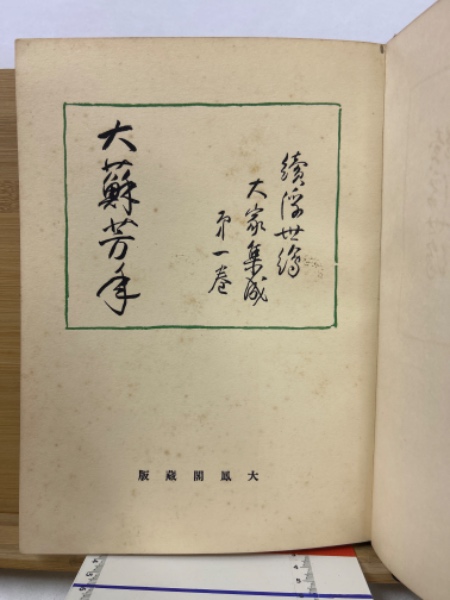 續浮世繪
大家集成
第一卷
大蘇芳年
大鳳閣藏版